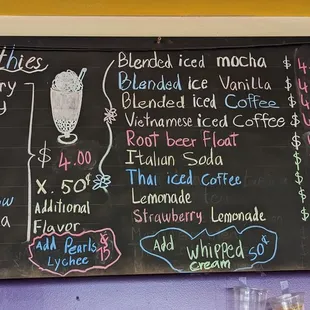 thies
Blended iced mocha $ 4.
Blended ice Vanilla $ 4.
Blended iced Coffee $ 4.
Vietnamese iced Coffee $ 4.
Root beer Float $
Italian Soda $
Thai iced Coffee $
Lemonade $
Strawberry Lemonade $
Add whipped 50¢
cream
$ 4.00
X. 50¢
Additional
Flavor
Add Pearls
Lychee